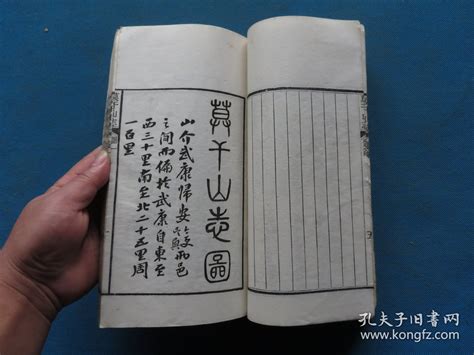 莫干山志圖
山介武康歸安兩邑
之間而偏於武康自東至
西三十里南至北二十五里周
一百里
莫干山志
莫干山志
孔夫子旧书网
www.kongfz.com